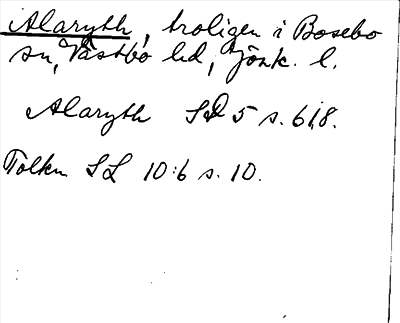 Alaryth, troligen i Bosebo
sn, Västbo hd, Jönk. l.
Alaryth SD 5 s. 618.
Tolkn SL 10:6 s. 10.